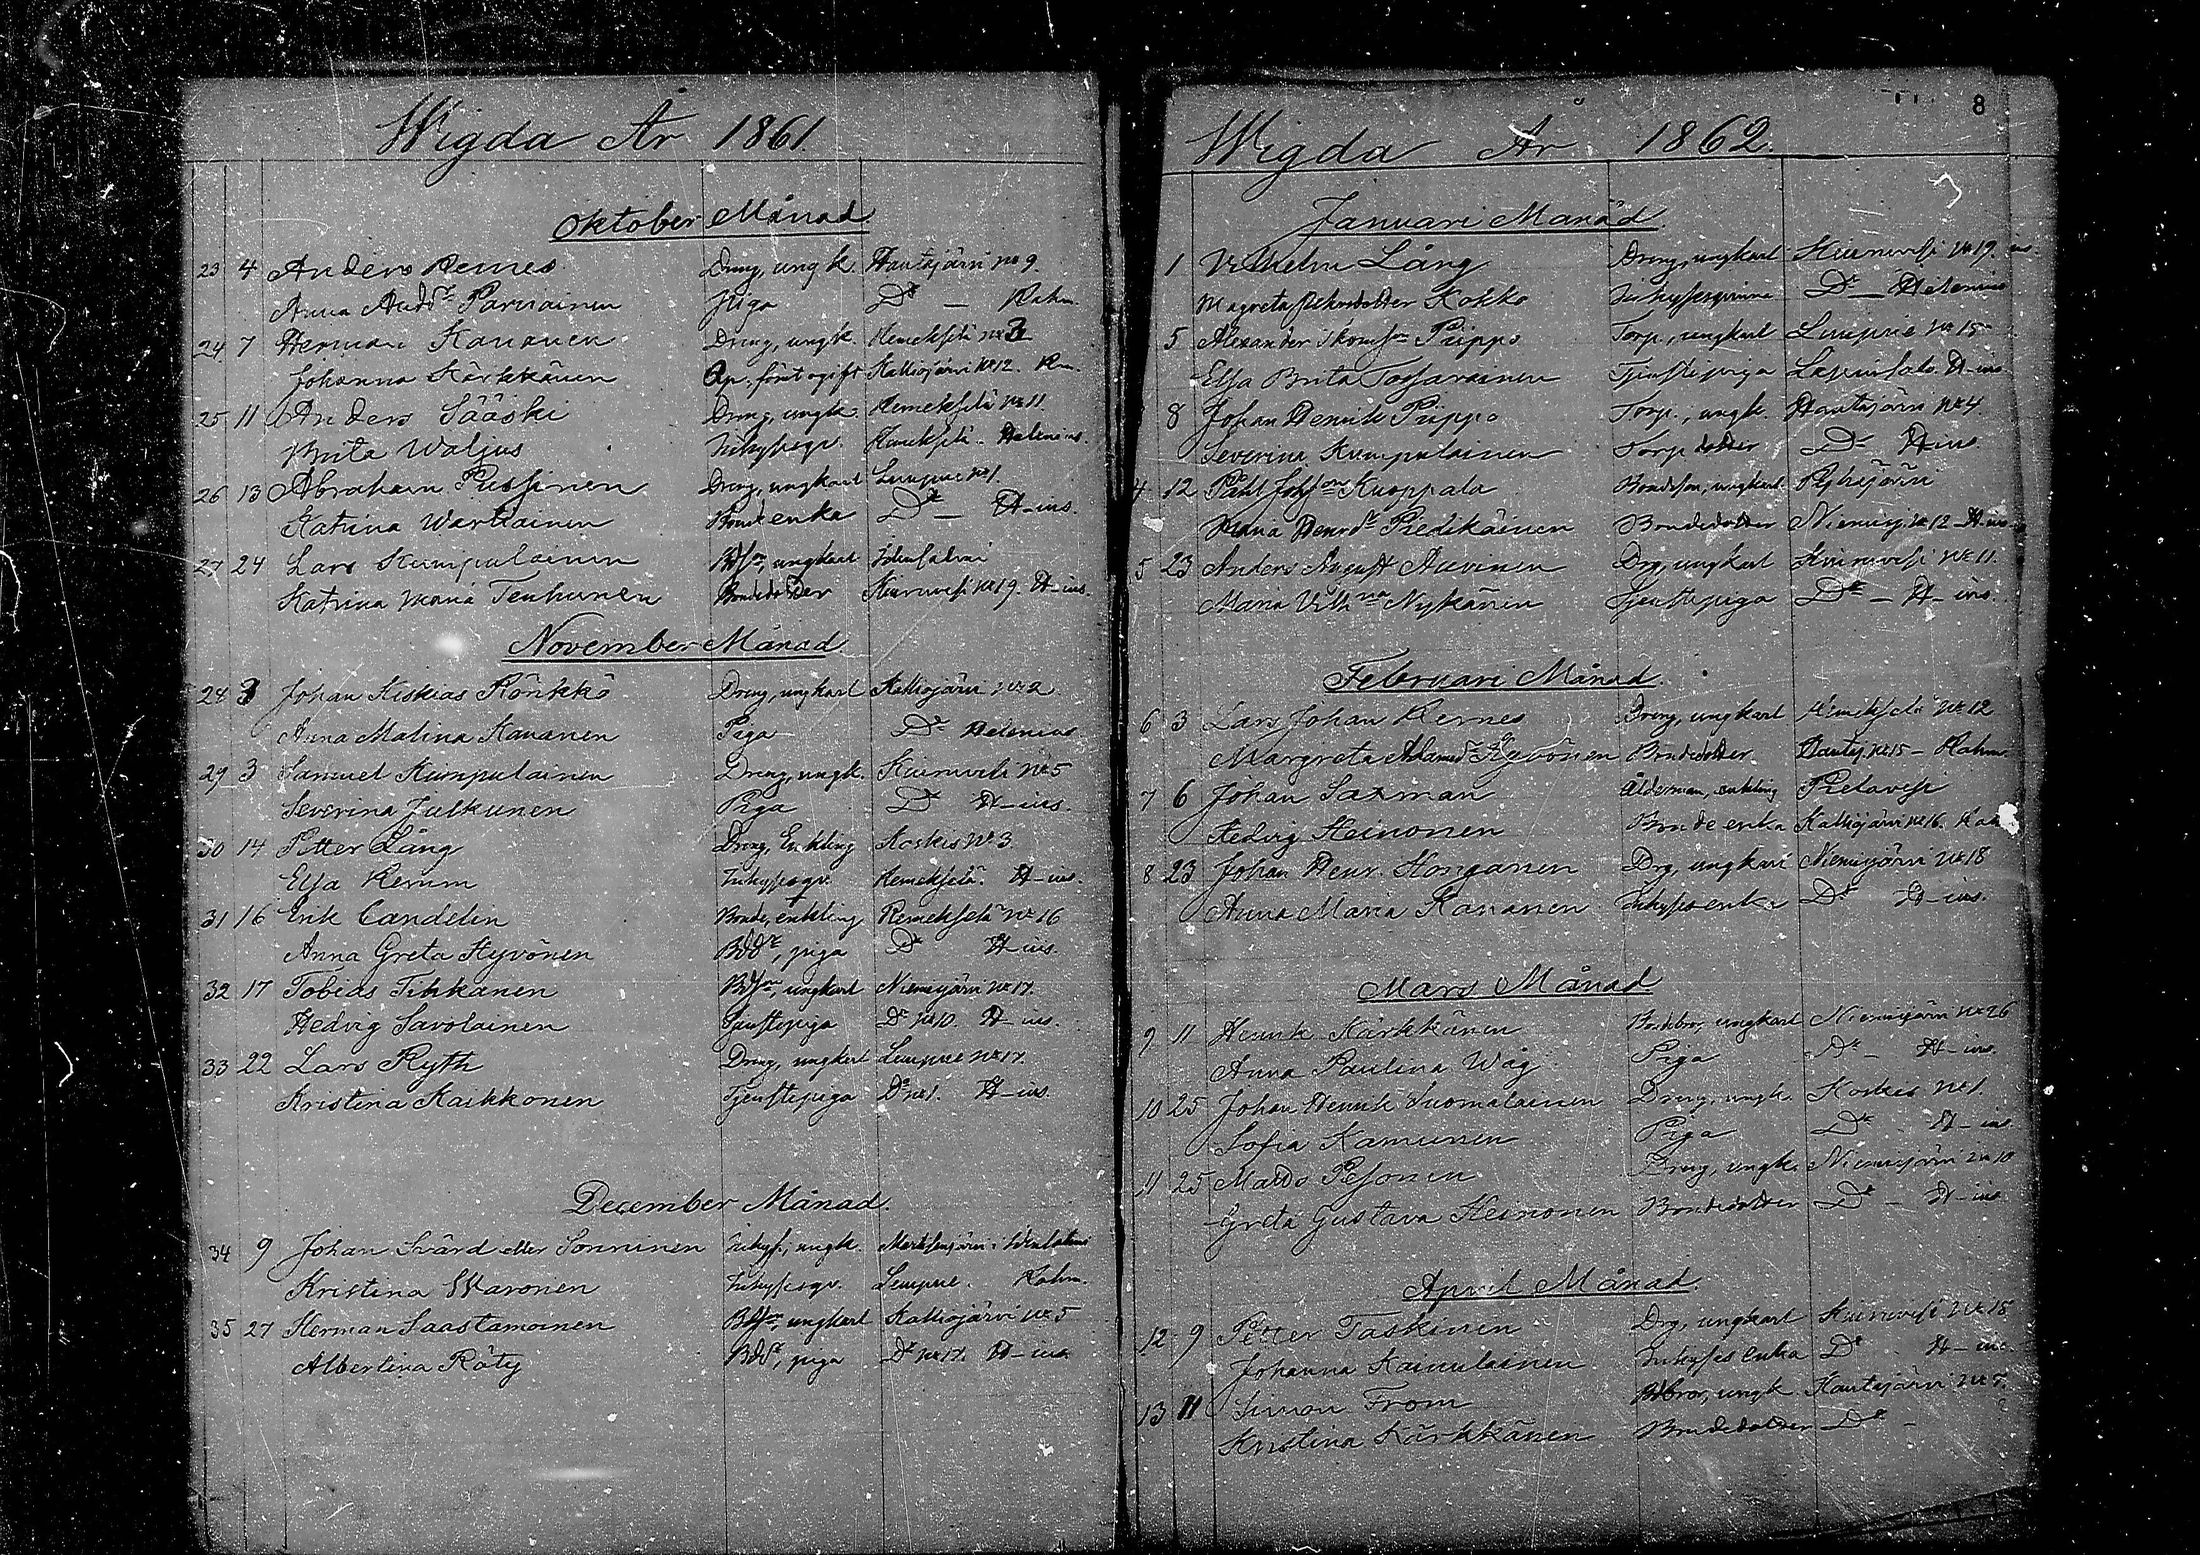 Wigda År 1861.
Oktober Månad
23 4 Anders Remes Dreng, ungk. Hautajärvi No 9.
Anna Andsdr Parviainen Piga Do — Rahm.
24 7 Herman Kananen Dreng, ungk. Remeksela No 3
Johanna Kärkkänen ogift Kalliojärvi No 12. Rm.
25 11 Anders Sääski Dreng, ungk. Remekselä No 11.
Brita Waljus Inhysesqv. Remekselä. Helenius.
26 13 Abraham Pussinen Dreng, ungkarl Lempue No 1.
Katrina Wartiainen Bondeenka Do — H—ius.
27 24 Lars Kumpulainen Bdson, ungkarl Idensalmi
Katrina Maria Tenhunen Bondedotter Kiuruvesi No 19. H—ius.
November Månad
28 3 Johan Kiskias Rönkkö Dreng, ungkarl Kalliojärvi No 2
Anna Malina Kananen Piga Do Helenius
29 3 Samuel Kumpulainen Dreng, ungk. Kiuruvesi No 5
Severina Julkunen Piga Do H—ius.
30 14 Petter Lång Dreng, Enkling Koskis No 3.
Elsa Remm Inhysesqv. Remekselä. H—ius.
31 16 Erik Candelin Bonde, enkling Remekselä No 16
Anna Greta Hyvönen Bddr, piga Do H—ius.
32 17 Tobias Tikkanen Bdson, ungkarl Niemisjärvi No 17.
Hedvig Savolainen Tjenstepiga Do No 10. H—ius.
33 22 Lars Ryth Dreng, ungkarl Lempue No 17.
Kristina Kaikkonen Tjenstepiga Do No 1. H—ius.
December Månad.
34 9 Johan Svärd eller Sonninen Inhys., ungk. i Idensalmi
Kristina Waronen Inhysesqv. Lempue. Rahm.
35 27 Herman Saastamoinen Bdson, ungkarl Kalliojärvi No 5
Albertina Räty Bddr, piga Do No 17. H—ius
8
Wigda År 1862.
Januari Månad
1 Vilhelm Lång Dreng, ungkarl Kiuruvesi No 19.
Magreta Kokko Inhysesqvinna Do — Helenius
5 Alexander Piippo Torp., ungkarl Lempue No 15
Elsa Brita Tossavainen Tjenstepiga Lapinsalo. H—ius
8 Johan Henrik Piippo Torp., ungk. Hautajärvi No 4
Severina Kumpulainen Torp dotter Do H—ius.
4 12 Påhl Johsson Kuoppala Bondeson, ungkarl Pyhäjärvi
Maria Henrdr Piedikäinen Bondedotter Niemisj. No 12 H—ius
5 23 Anders August Auvinen Drg, ungkarl Kiuruvesi No 11.
Maria Vilhna Nykänen Tjenstepiga Do — H—ius.
Februari Månad.
6 3 Lars Johan Remes Dreng, ungkarl Remekselä No 12
Margreta Adamsdr Hyvönen Bondedotter Hautaj. No 15 — Rahm.
7 6 Johan Saxman Ålderman, enkling Pielavesi
Hedvig Heinonen Bondeenka Kalliojärvi No 16. Rah
8 23 Johan Henr. Honganen Drg, ungkarl Niemisjärvi No 18
Anna Maria Kananen Inhysesenka Do H—ius.
Mars Månad.
9 11 Henrik Kärkkänen Bondebror, ungkarl Niemisjärvi No 26
Anna Paulina Wåg Piga Do — H—ius.
10 25 Johan Henrik Suomalainen Dreng, ungk. Koskis No 1.
Sofia Kamunen Piga Do H—ius
11 25 Matts Pesonen Dreng, ungk. Niemisjärvi No 10
Greta Gustava Heinonen Bondedotter Do — H—ius
April Månad.
12 9 Petter Taskinen Drg, ungkarl Kiuruvesi No 18
Johanna Kainulainen Inhyses enka Do H—ius
13 11 Simon From Bdbror, ungk Hautajärvi No 5.
Kristina Kärkkänen Bondedotter Do —